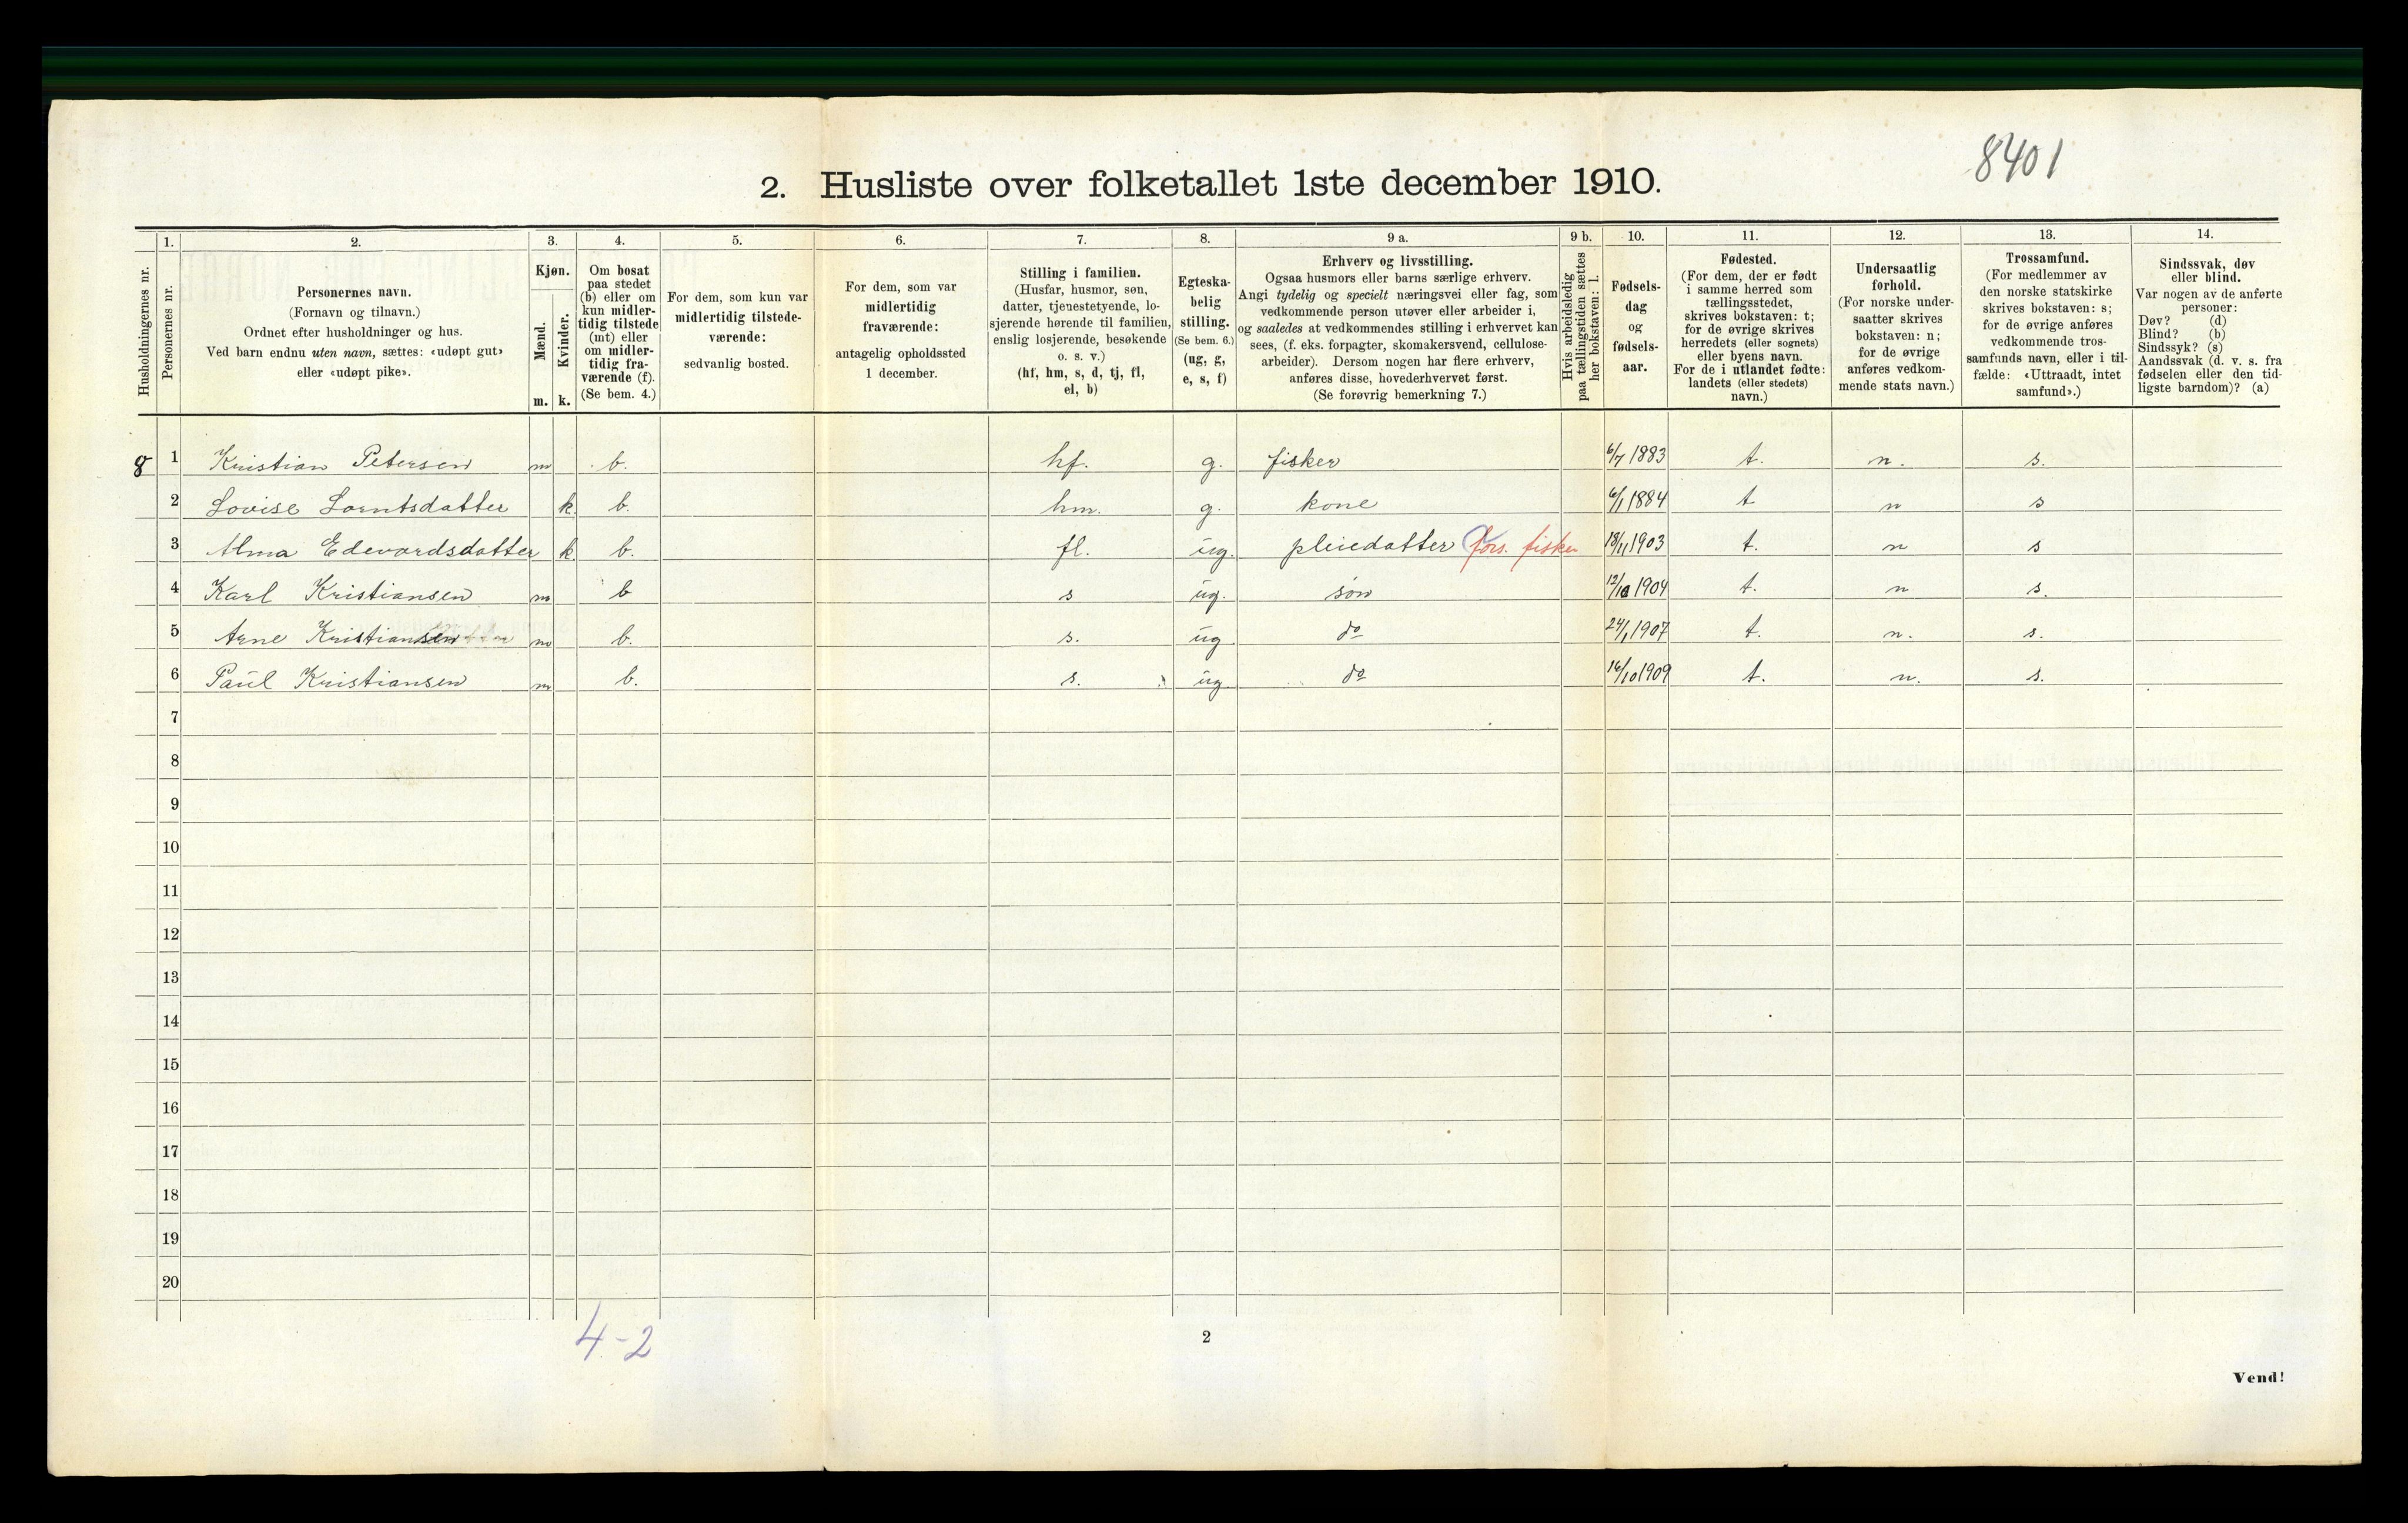 8401
2. Husliste over folketallet 1ste december 1910.
Husholdningernes nr.
1.
Personernes nr.
2.
Personernes navn.
(Fornavn og tilnavn.)
Ordnet efter husholdninger og hus.
Ved barn endnu uten navn, sættes: «udøpt gut»
eller «udøpt pike».
3.
Kjøn.
Mænd.
m.
Kvinder.
k.
4.
Om bosat
paa stedet
(b) eller om
kun midler-
tidig tilstede
(mt) eller
om midler-
tidig fra-
værende (f).
(Se bem. 4.)
5.
For dem, som kun var
midlertidig tilstede-
værende:
sedvanlig bosted.
6.
For dem, som var
midlertidig
fraværende:
antagelig opholdssted
1 december.
7.
Stilling i familien.
(Husfar, husmor, søn,
datter, tjenestetyende, lo-
sjerende hørende til familien,
enslig losjerende, besøkende
o. s. v.)
(hf, hm, s, d, tj, fl,
el, b)
8.
Egteska-
belig
stilling.
(Se bem. 6.)
(ug, g,
e, s, f)
9 a.
Erhverv og livsstilling.
Ogsaa husmors eller barns særlige erhverv.
Angi tydelig og specielt næringsvei eller fag, som
vedkommende person utøver eller arbeider i,
og saaledes at vedkommendes stilling i erhvervet kan
sees, (f. eks. forpagter, skomakersvend, cellulose-
arbeider). Dersom nogen har flere erhverv,
anføres disse, hovederhvervet først.
(Se forøvrig bemerkning 7.)
9 b.
Hvis arbeidsledig
paa tællingstiden sættes
her bokstaven: l.
10.
Fødsels-
dag
og
fødsels-
aar.
11.
Fødested.
(For dem, der er født
i samme herred som
tællingsstedet,
skrives bokstaven: t;
for de øvrige skrives
herredets (eller sognets)
eller byens navn.
For de i utlandet fødte:
landets (eller stedets)
navn.)
12.
Undersaatlig
forhold.
(For norske under-
saatter skrives
bokstaven: n;
for de øvrige
anføres vedkom-
mende stats navn.)
13.
Trossamfund.
(For medlemmer av
den norske statskirke
skrives bokstaven: s;
for de øvrige anføres
vedkommende tros-
samfunds navn, eller i til-
fælde: «Uttraadt, intet
samfund».)
14.
Sindssvak, døv
eller blind.
Var nogen av de anførte
personer:
Døv? (d)
Blind? (b)
Sindssyk? (s)
Aandssvak (d. v. s. fra
fødselen eller den tid-
ligste barndom)? (a)
8 1 Kristian Petersen m b. hf. g. fisker 6/7 1883 t. n. s.
2 Lovise Lorntsdatter k. b. hm. g. kone 6/1 1884 t n s
3 Alma Edevardsdatter k b. fl. ug. pleiedatter fors. fisker 18/11 1903 t. n s
4 Karl Kristiansen m b s ug. søn 1904 t. n s.
5 Arne Kristiansen m b. s. ug do 24/1 1907 t. n. s.
6 Paul Kristiansen m b. s. ug do 16/10 1909 t. n. s.
7
8
9
10
11
12
13
14
15
16
17
18
19
20
4-2
2
Vend!